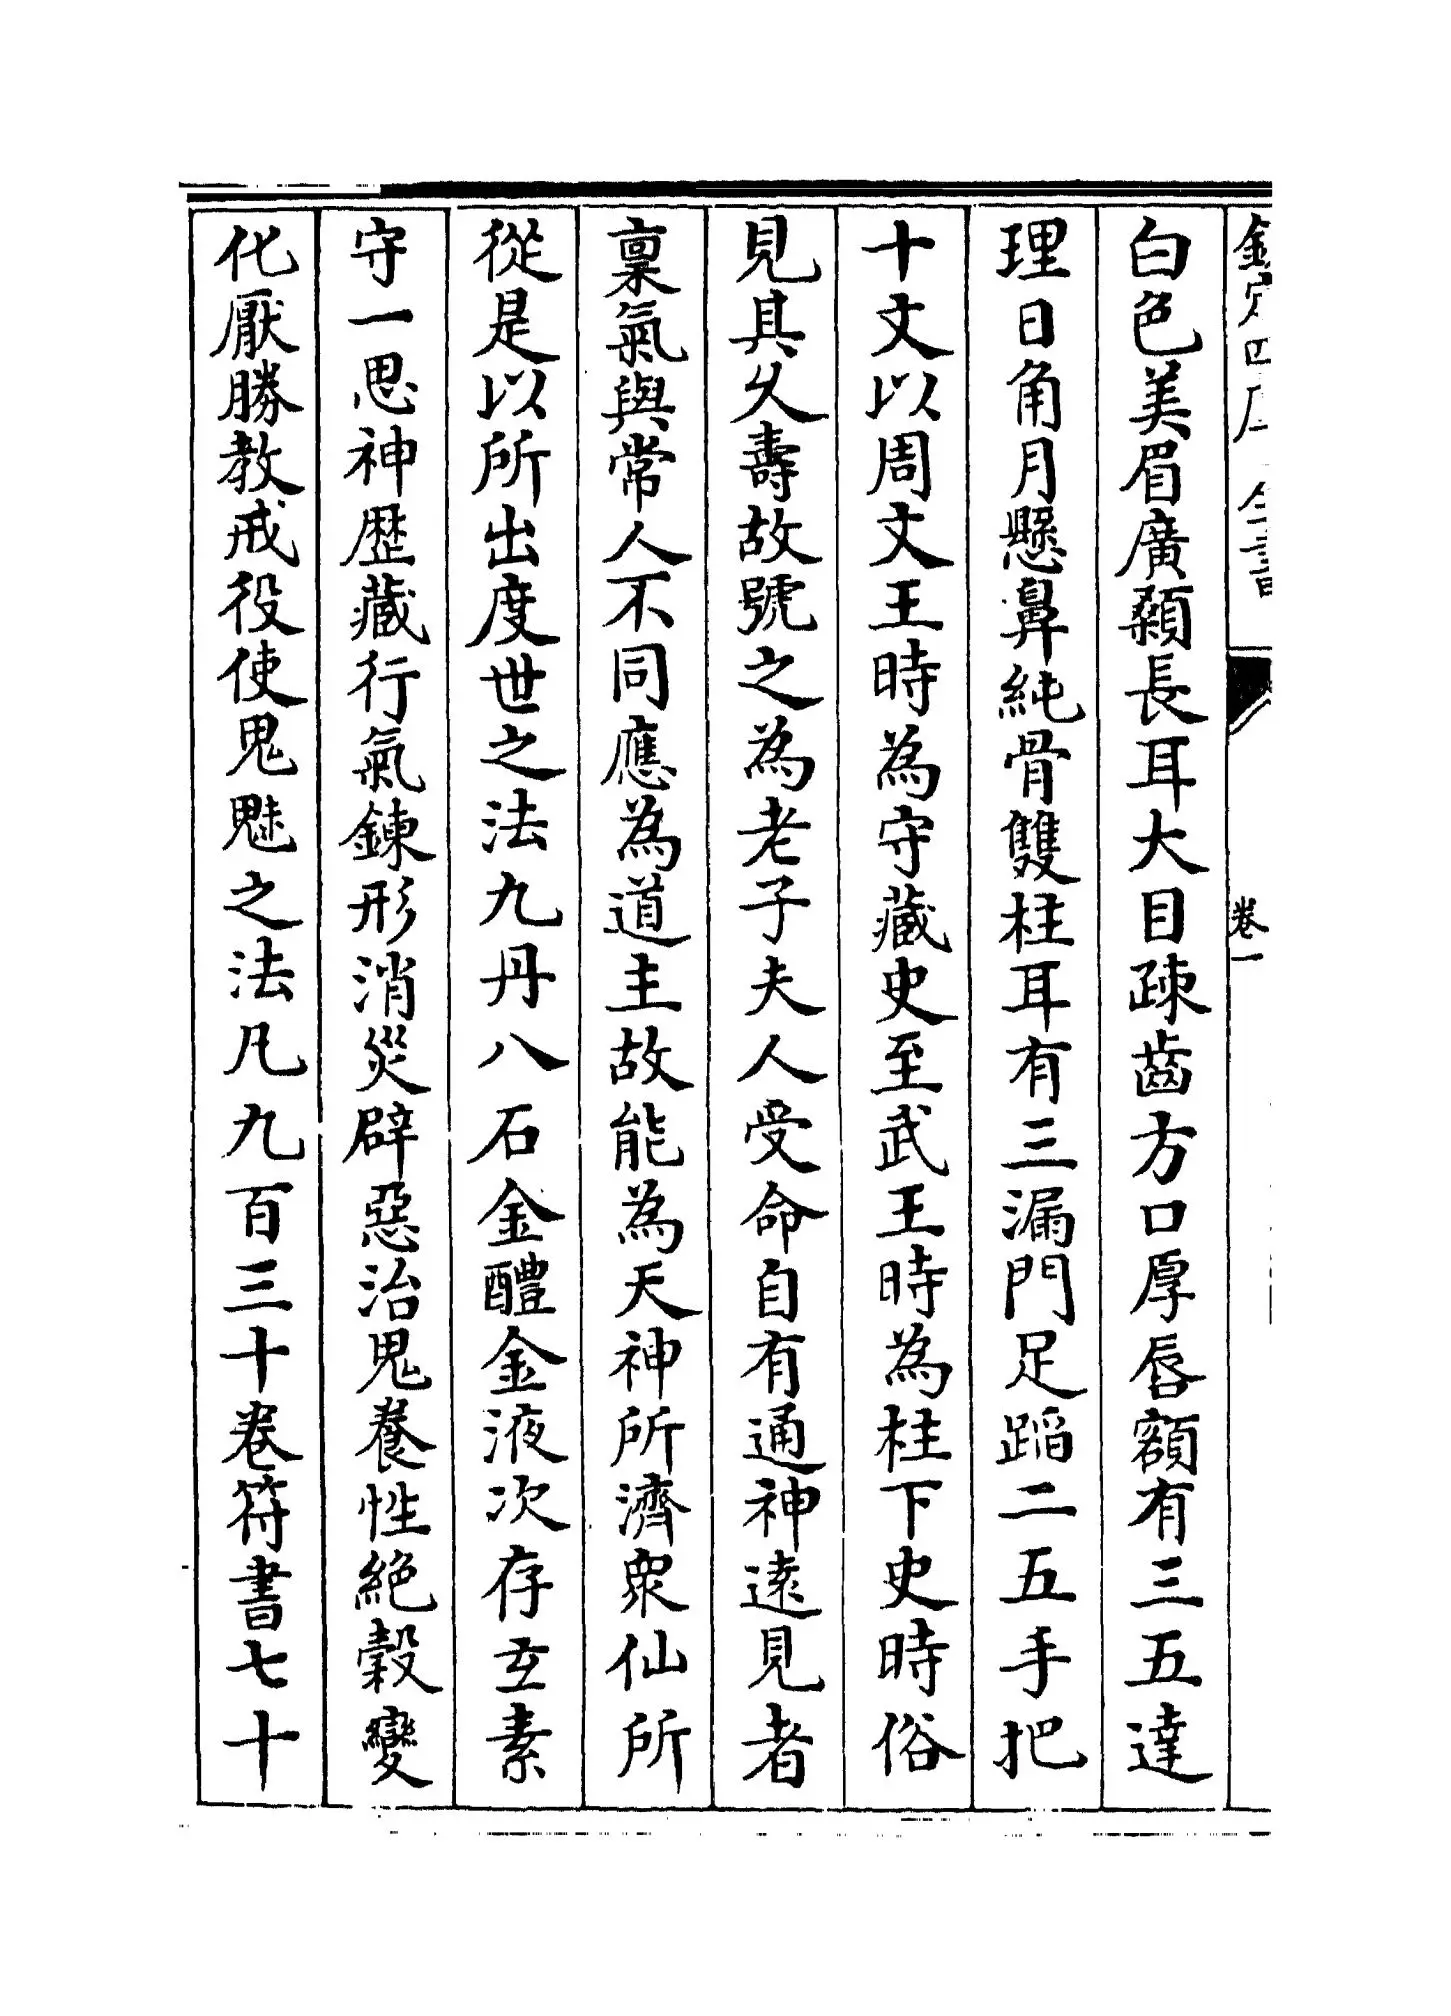 欽定四庫全書
卷一
白色美眉廣顙長耳大目疎齒方口厚唇額有三五達
理日角月懸鼻純骨雙柱耳有三漏門足蹈二五手把
十文以周文王時為守藏史至武王時為柱下史時俗
見其久壽故號之為老子夫人受命自有通神逺見者
稟氣與常人不同應為道主故能為天神所濟衆仙所
從是以所出度世之法九丹八石金醴金液次存玄素
守一思神歴藏行氣鍊形消災辟惡治鬼養性絶穀變
化厭勝教戒役使鬼魅之法凡九百三十卷符書七十